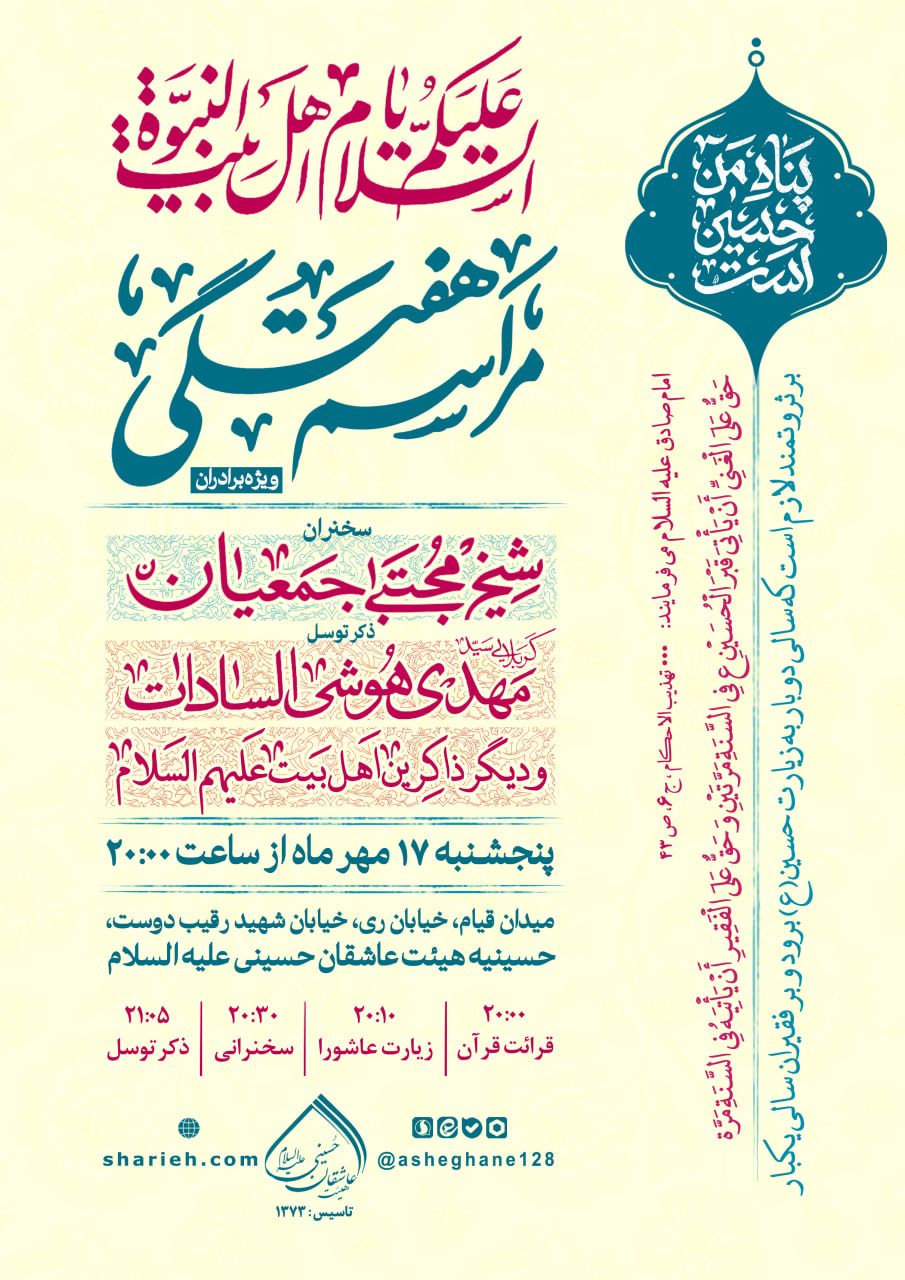 السلام علیکم یا اهل بیت النبوة
مراسم هفتگی
ویژه برادران
سخنران
شیخ مجتبی اجمعیان
ذکر توسل
کربلایی سید
مهدی هوشی السادات
و دیگر ذاکرین اهل بیت علیهم السلام
پنجشنبه ۱۷ مهر ماه از ساعت ۲۰:۰۰
میدان قیام، خیابان ری، خیابان شهید رقیب دوست،
حسینیه هیئت عاشقان حسینی علیه السلام
۲۰:۰۰ قرائت قرآن
۲۰:۱۰ زیارت عاشورا
۲۰:۳۰ سخنرانی
۲۱:۰۵ ذکر توسل
@asheghane128
هیئت عاشقان حسینی علیه السلام
تاسیس: ۱۳۷۳
sharieh.com
پناه من
حسین
است
امام صادق علیه السلام می فرمایند: ••• تهذیب الاحکام، ج ۶، ص ۴۳
حَقٌّ عَلَى الْغَنِيِّ أَنْ يَأْتِيَ قَبْرَ الْحُسَيْنِ ع فِي السَّنَةِ مَرَّتَيْنِ وَ حَقٌّ عَلَى الْفَقِيرِ أَنْ يَأْتِيَهُ فِي السَّنَةِ مَرَّة
بر ثروتمند لازم است که سالی دو بار به زیارت حسین (ع) برود و بر فقیران سالی یکبار